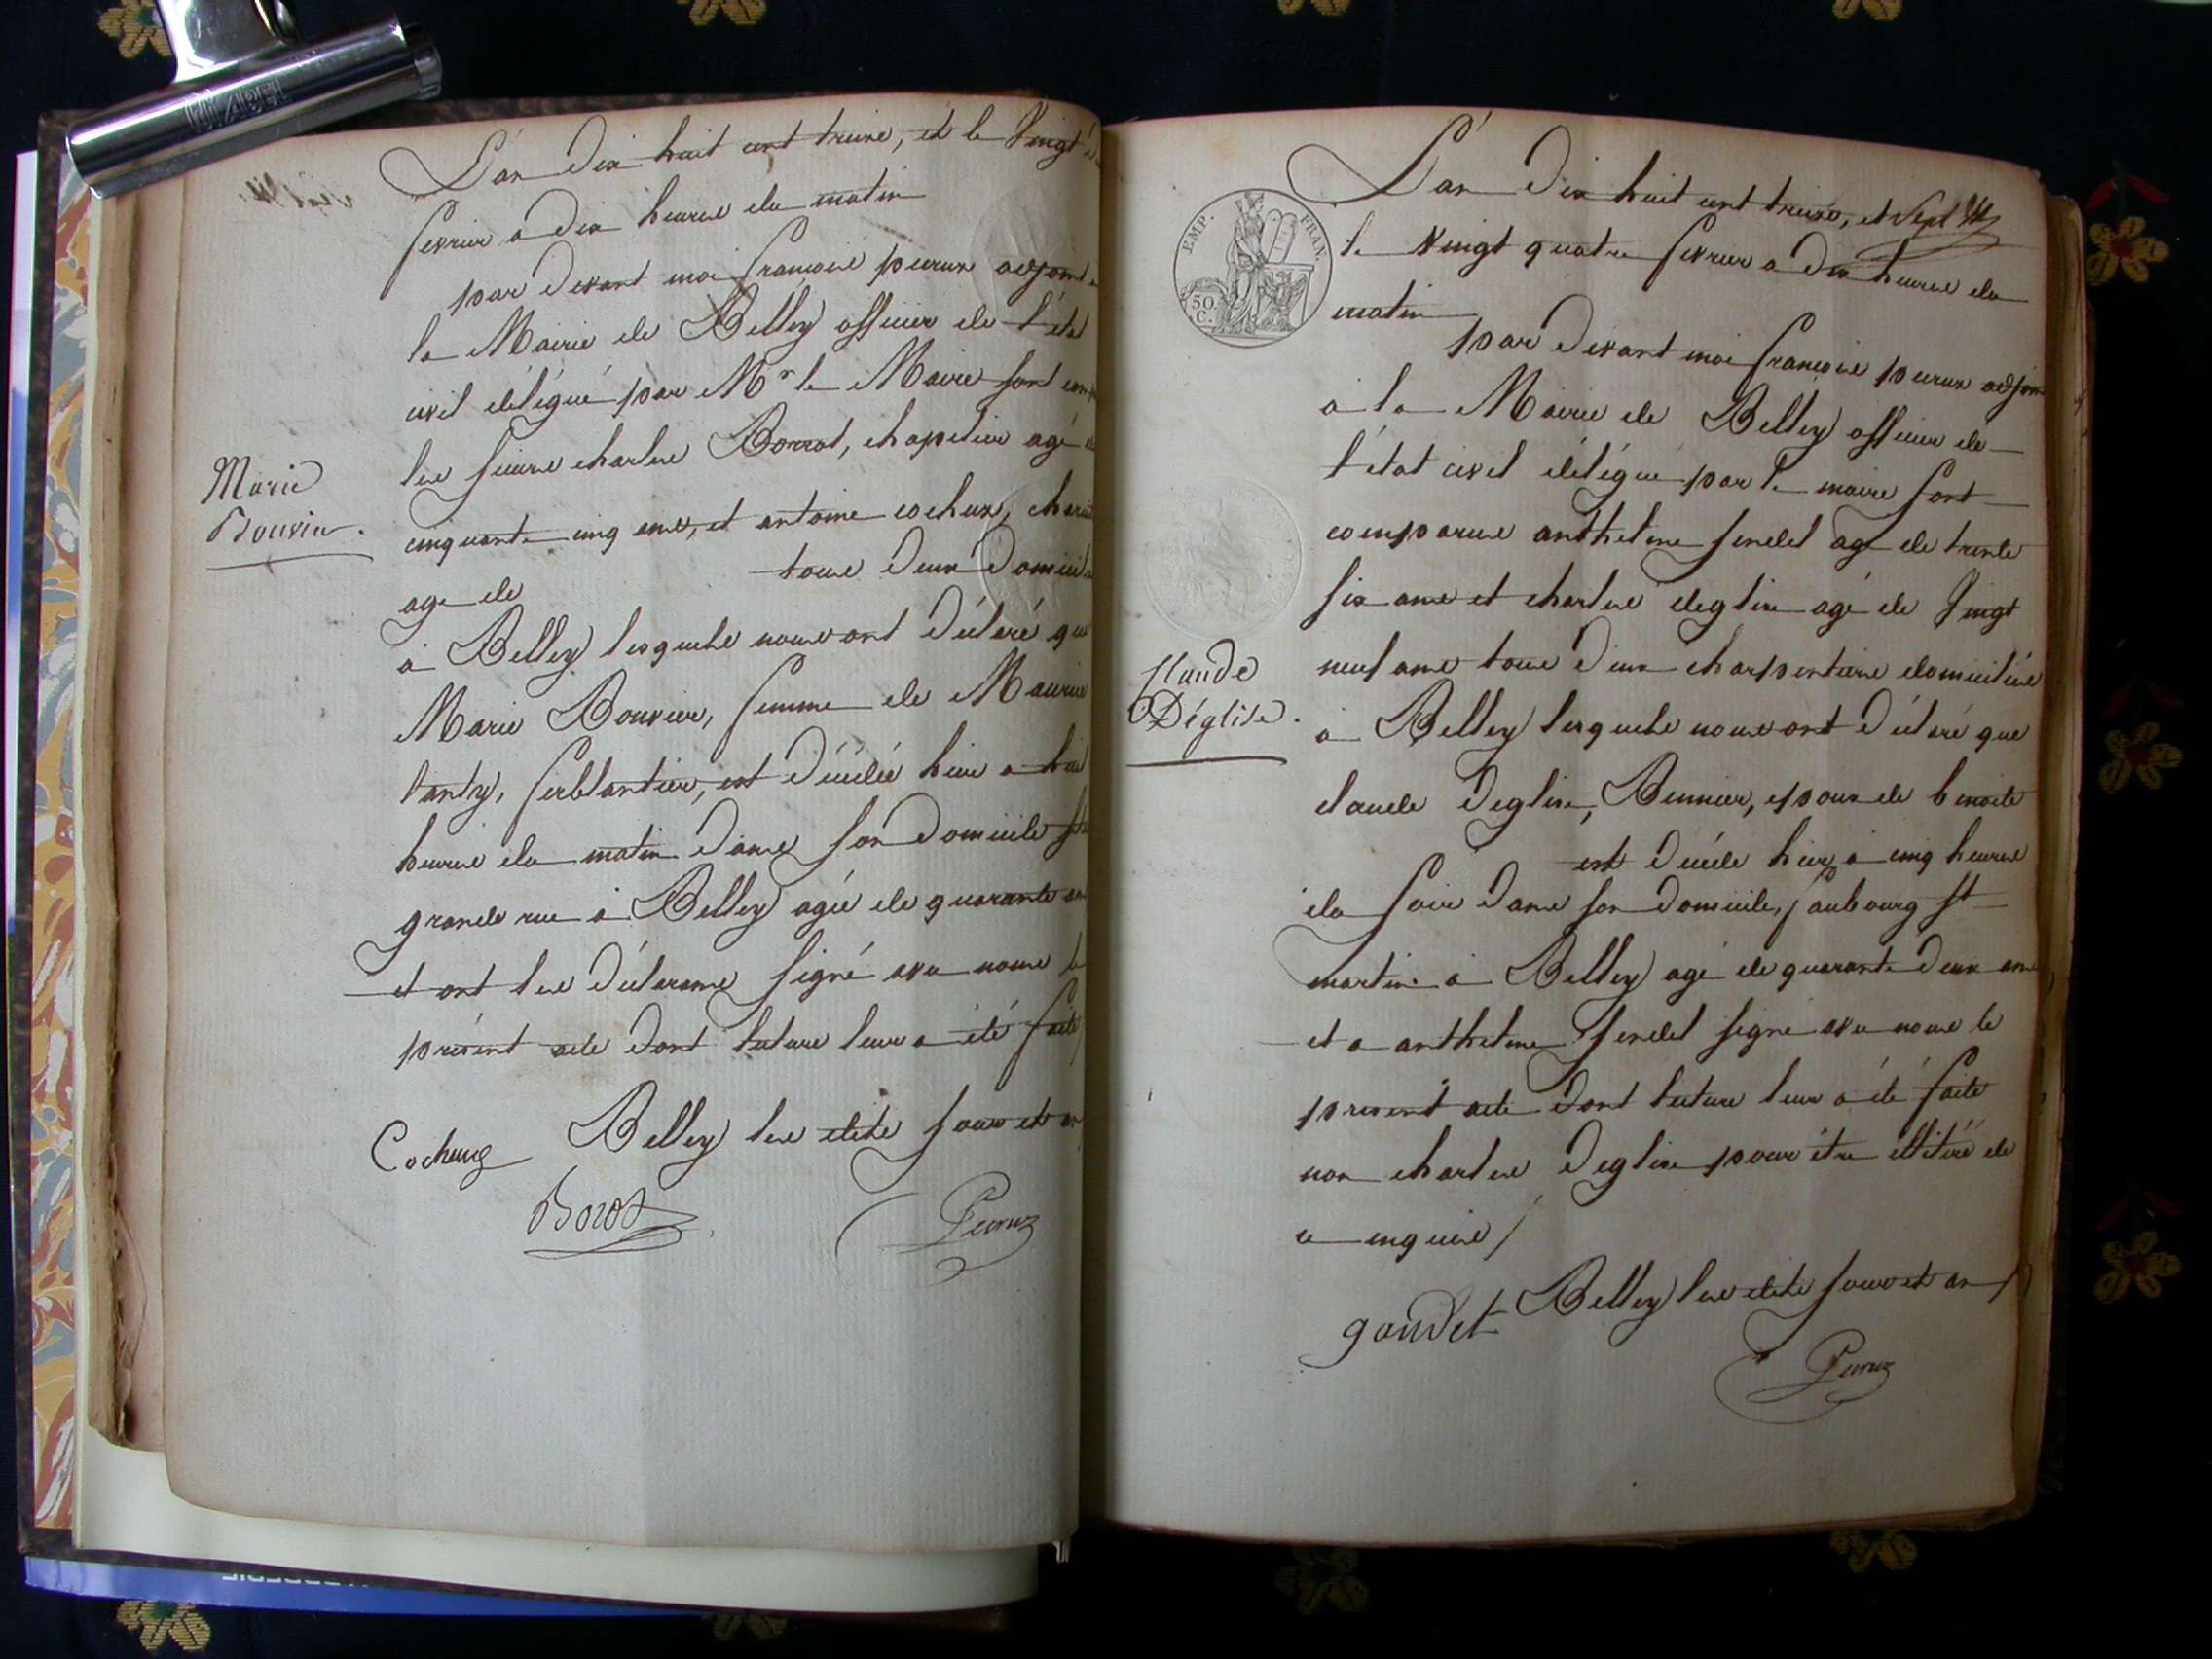 L'an dix huit cent treize, et le vingt
fevrier a dix heures du matin
par devant moi françois peruz adjoint
la Mairie de Belley officier de l'état
civil délégué par Mr le Maire sont
les sieurs charles Borrot, chapelier agé
cinquante cinq ans, et antoine cocheux,
agé de tous deux
à Belley lesquels nous ont déclaré que
Marie Bouvier, femme de Maurice
ferblantier, est décédée hier a
heures du matin dans son domicile
grande rue à Belley agée de quarante
et ont les déclarans signé avec nous le
présent acte dont lecture leur a été faite
Belley les dits jour et an
Cocheux
Borot
Peruz
Marie
Bouvier.
L'an dix huit cent treize, et
Sept
le vingt quatre fevrier a dix heures du
matin
par devant moi françois peruz adjoint
a la Mairie de Belley officier de
l'état civil délégué par le maire sont
comparus anthelme agé de trente
six ans et charles deglise agé de vingt
neuf ans tous deux charpentiers domiciliés
à Belley lesquels nous ont déclaré que
claude deglise, époux de benoite
est décédé hier à cinq heures
du soir dans son domicile, faubourg st
martin à Belley agé de quarante deux ans
et a anthelme signé avec nous le
present acte dont lecture leur a été faite
non charles deglise pour être illitéré de
ce enquis /
Belley les dits jour et an
gondet
Peruz
Claude
Déglise.
EMP. FRAN.
50
C.